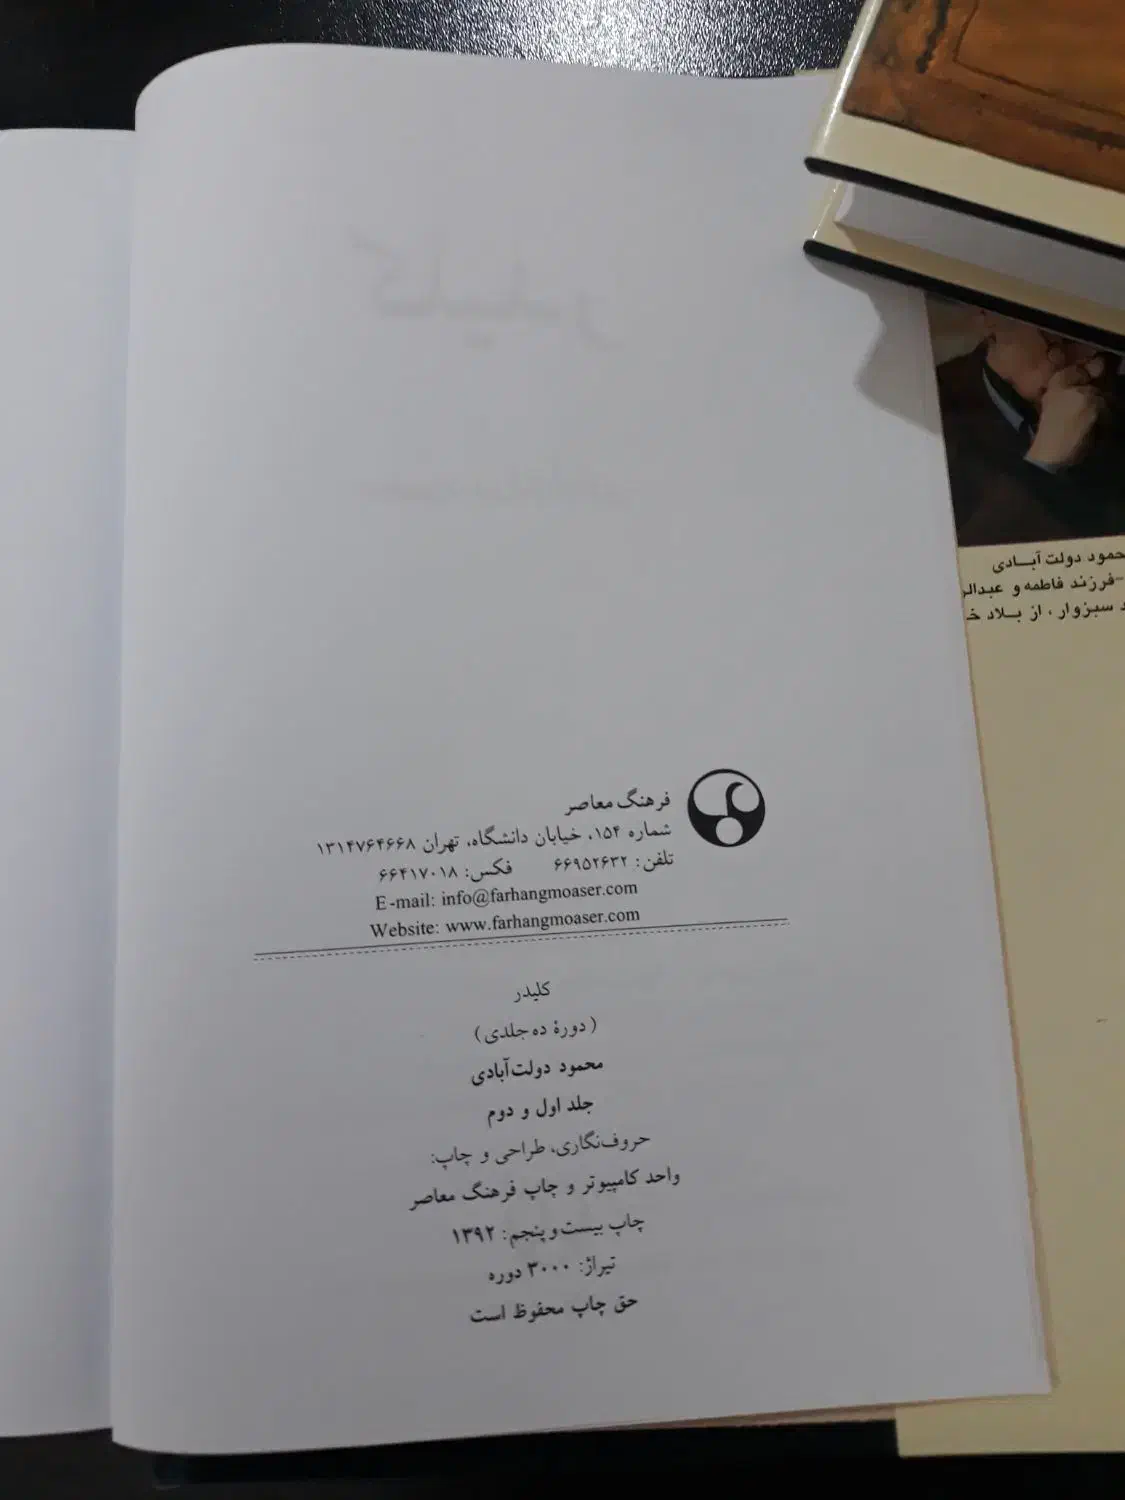 فرهنگ معاصر
شماره ۱۵۴، خیابان دانشگاه، تهران ۱۳۱۴۷۶۴۶۶۸
تلفن: ۶۶۹۵۲۶۳۲ فکس: ۶۶۴۱۷۰۱۸
E-mail: info@farhangmoaser.com
Website: www.farhangmoaser.com
کلیدر
(دورهٔ ده جلدی)
محمود دولت‌آبادی
جلد اول و دوم
حروف‌نگاری، طراحی و چاپ:
واحد کامپیوتر و چاپ فرهنگ معاصر
چاپ بیست‌و‌پنجم: ۱۳۹۲
تیراژ: ۳۰۰۰ دوره
حق چاپ محفوظ است
دولت آبادی
-فرزند فاطمه و
سبزوار، از بلاد